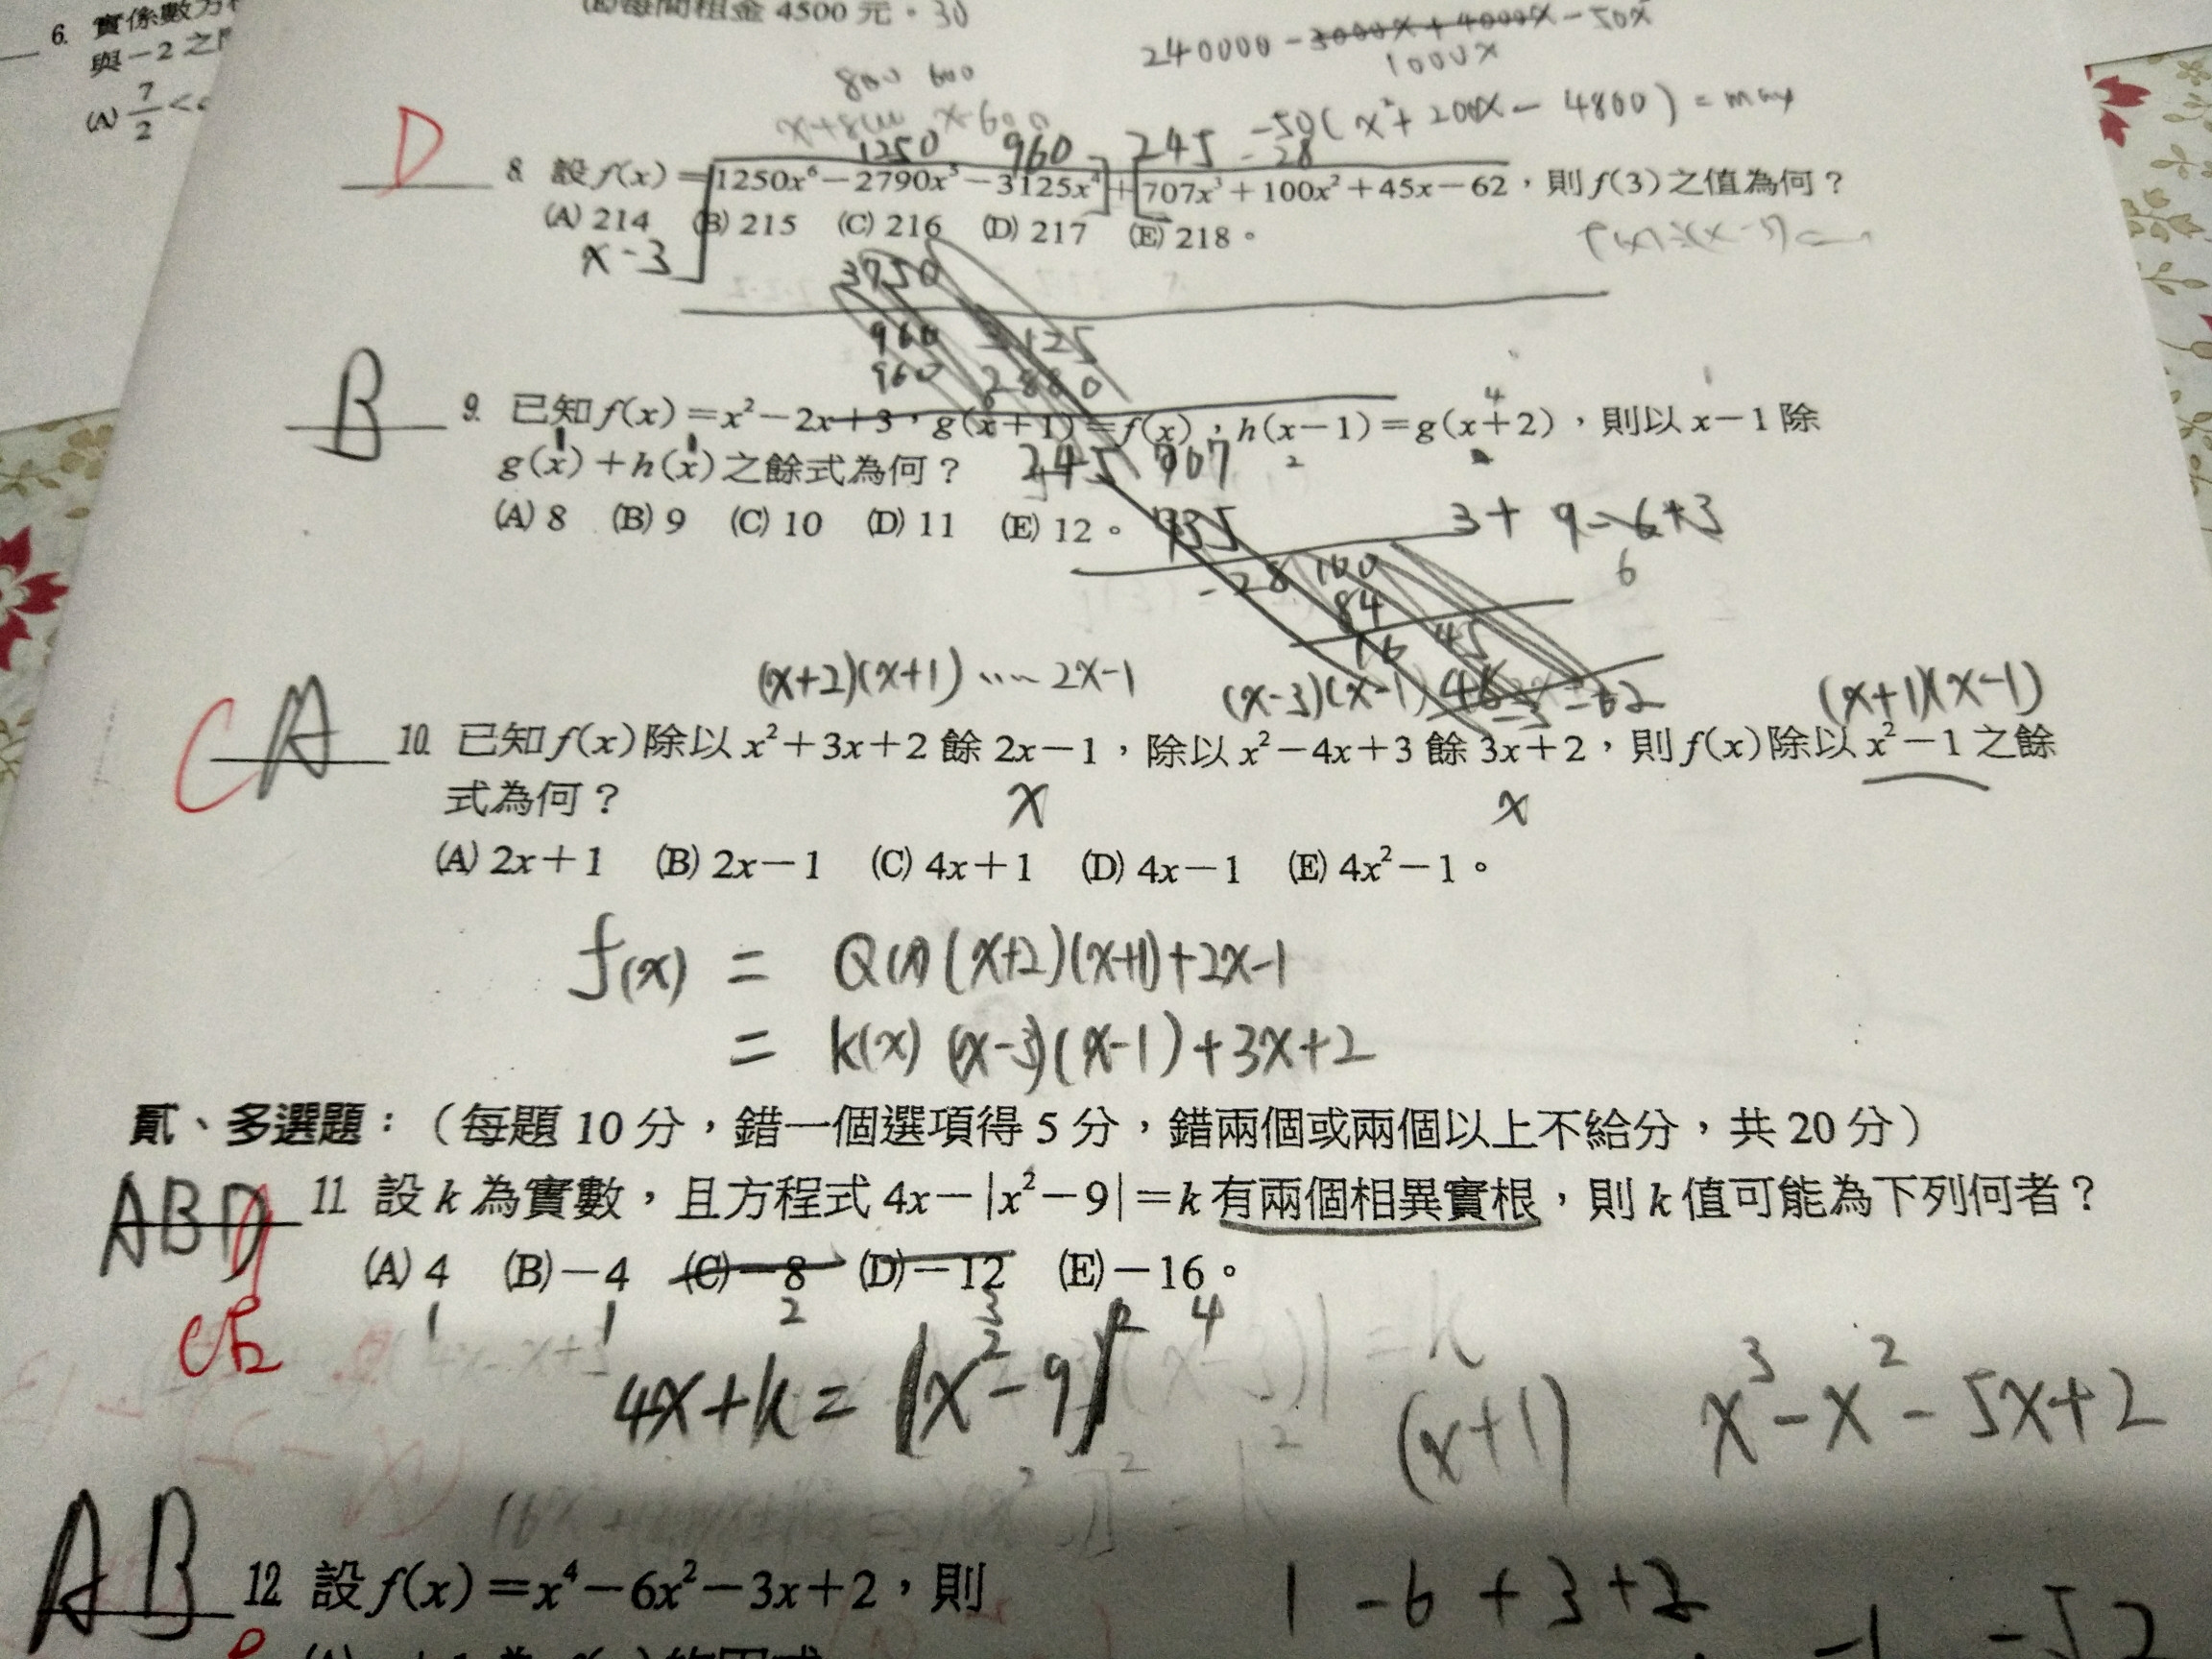 6. 實係數方
與－2之
(A) 7/2 <
(E)每間租金 4500 元。30
240000 - 3000x + 4000x - 50x
1000x
800 600
-50(x²+200x - 4800) = max
1250 960 245 -28
D 8. 設 f(x)＝1250x⁶－2790x⁵－3125x⁴＋707x³＋100x²＋45x－62，則 f(3) 之值為何？
(A) 214 (B) 215 (C) 216 (D) 217 (E) 218。
x-3
3750
960 3125
960 2880
B 9. 已知 f(x)＝x²－2x＋3，g(x＋1)＝f(x)，h(x－1)＝g(x＋2)，則以 x－1 除
g(x)＋h(x) 之餘式為何？ 245 707
(A) 8 (B) 9 (C) 10 (D) 11 (E) 12。 735 3+ 9-6+3
-28 100 6
84
16 45
(x+2)(x+1) ····· 2x-1 (x-3)(x-1) 48 (x+1)(x-1)
-3 -62
CA 10. 已知 f(x) 除以 x²＋3x＋2 餘 2x－1，除以 x²－4x＋3 餘 3x＋2，則 f(x) 除以 x²－1 之餘
式為何？ x x
(A) 2x＋1 (B) 2x－1 (C) 4x＋1 (D) 4x－1 (E) 4x²－1。
f(x) = Q(x)(x+2)(x+1)+2x-1
= k(x)(x-3)(x-1)+3x+2
貳、多選題：（每題 10 分，錯一個選項得 5 分，錯兩個或兩個以上不給分，共 20 分）
ABD 11. 設 k 為實數，且方程式 4x－|x²－9|＝k 有兩個相異實根，則 k 值可能為下列何者？
(A) 4 (B)－4 (C)－8 (D)－12 (E)－16。
1 1 2 3 4
4x+k = |x²-9|²
(x+1) x³-x²-5x+2
AB 12. 設 f(x)＝x⁴－6x²－3x＋2，則
1 -6 +3 +2
-1 -5 2